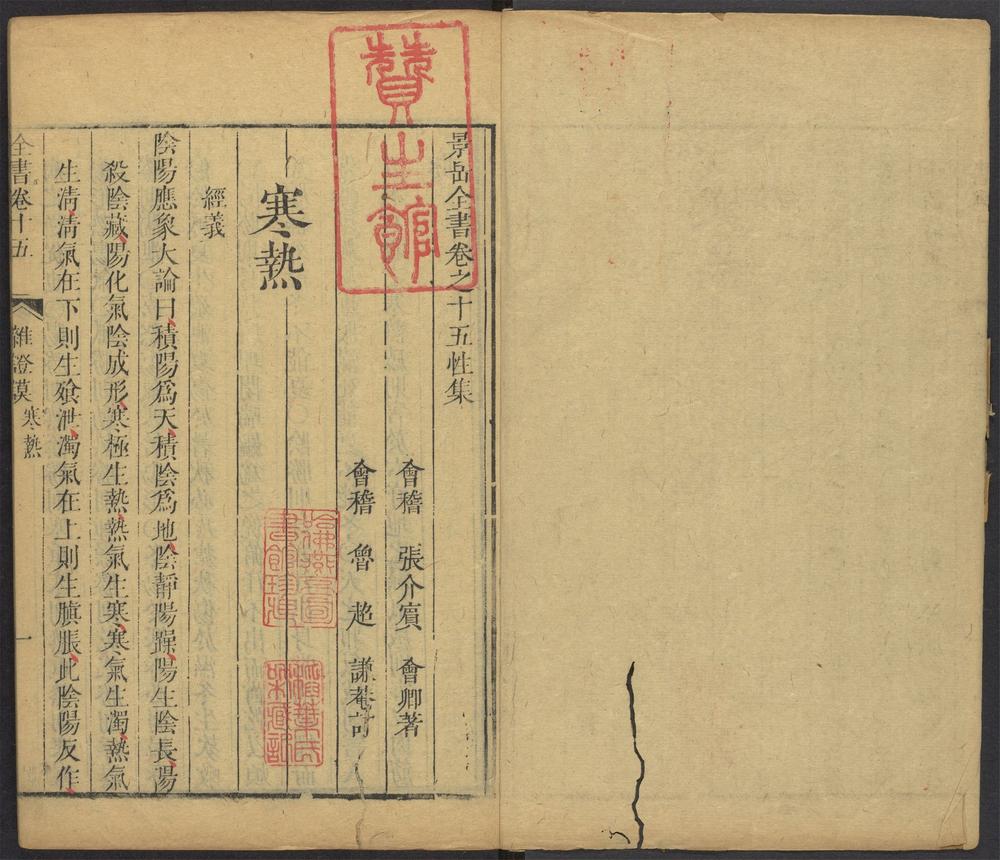 景岳全書卷之十五性集
會稽 張介賓 會卿著
會稽 魯 超 謙菴訂
寒熱
經義
陰陽應象大論曰積陽爲天積陰爲地陰靜陽躁陽生陰長陽
殺陰藏陽化氣陰成形寒極生熱熱氣生寒寒氣生濁熱氣
生淸淸氣在下則生飱泄濁氣在上則生䐜脹此陰陽反作
全書卷十五 雜證謨 寒熱 一
贊生館